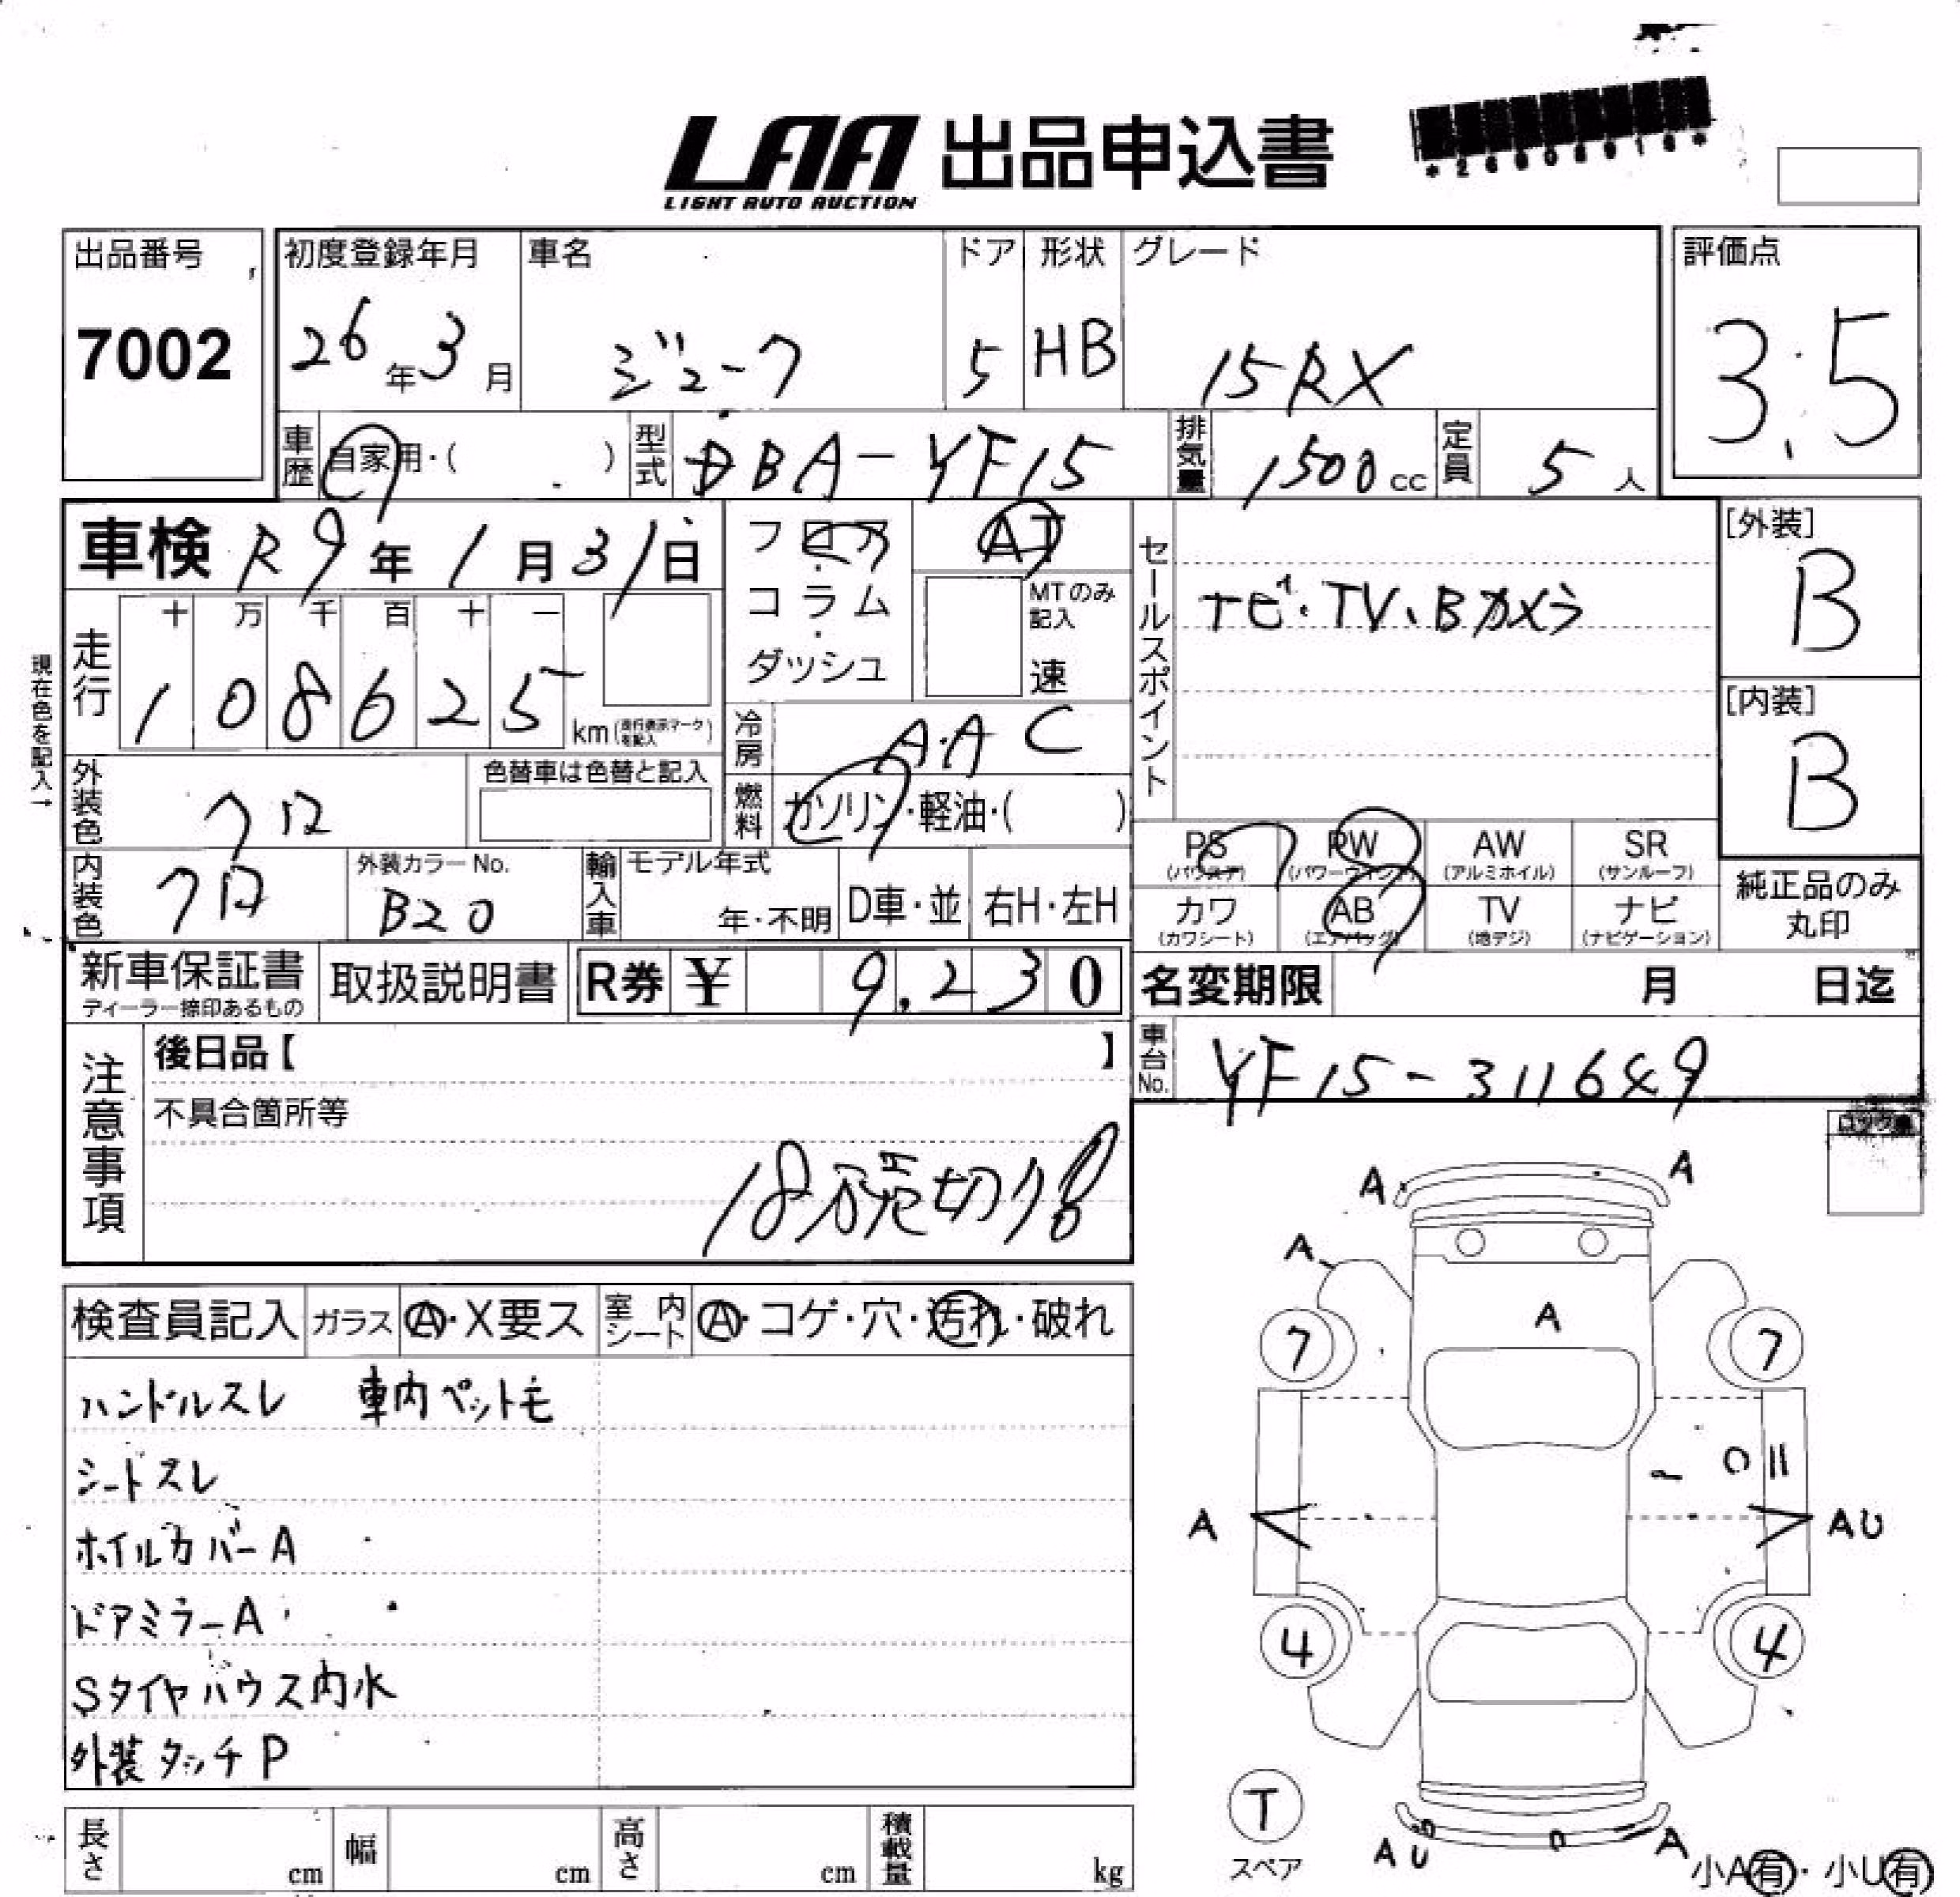 LAA 出品申込書
LIGHT AUTO AUCTION
*26008016*
出品番号
7002
初度登録年月
26年3月
車名
ジューク
ドア
5
形状
HB
グレード
15RX
評価点
3.5
車歴
自家用・( )
型式
DBA-YF15
排気量
1500cc
定員
5人
車検 R9年1月31日
フロア・コラム・ダッシュ
AT
MTのみ記入
速
セールスポイント
ナビ・TV、Bカメラ
[外装]
B
[内装]
B
現在色を記入→
走行
十 万 千 百 十 一
1 0 8 6 2 5
km(走行表示マークを記入)
冷房
AAC
燃料
ガソリン・軽油・( )
外装色
クロ
色替車は色替と記入
内装色
クロ
外装カラーNo.
B20
輸入車
モデル年式
年・不明
D車・並
右H・左H
PS
(パワステ)
PW
(パワーウィンド)
AW
(アルミホイル)
SR
(サンルーフ)
カワ
(カワシート)
AB
(エアバッグ)
TV
(地デジ)
ナビ
(ナビゲーション)
純正品のみ
丸印
新車保証書
ディーラー捺印あるもの
取扱説明書
R券 ¥ 9,230
名変期限 月 日迄
車台No.
YF15-311649
注意事項
後日品【 】
不具合箇所等
売切
検査員記入
ガラス
A・X要ス
室内シート
A・コゲ・穴・汚れ・破れ
ハンドルスレ 車内ペット毛
シートスレ
ホイルカバーA
ドアミラーA
Sタイヤハウス内水
外装タッチP
A A
A
A
7 7
A AU
4 4
T
スペア
AU A
小A有・小U有
長さ cm
幅 cm
高さ cm
積載量 kg